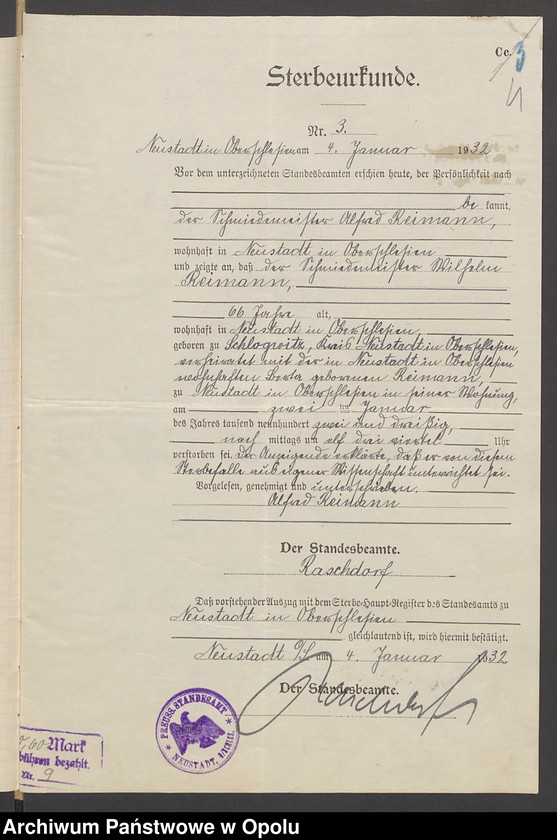 Cc. 3
4
Sterbeurkunde.
Nr. 3.
Neustadt in Oberschlesien am 4. Januar 1932
Vor dem unterzeichneten Standesbeamten erschien heute, der Persönlichkeit nach
be kannt,
der Schmiedemeister Alfred Reimann,
wohnhaft in Neustadt in Oberschlesien
und zeigte an, daß der Schmiedemeister Wilhelm
Reimann,
66 Jahre alt,
wohnhaft in Neustadt in Oberschlesien,
geboren zu Schlogwitz, Kreis Neustadt in Oberschlesien,
verheiratet mit der in Neustadt in Oberschlesien
wohnhaften Berta geborenen Reimann,
zu Neustadt in Oberschlesien in seiner Wohnung,
am zwei ten Januar
des Jahres tausend neunhundert zwei und dreißig,
nach mittags um elf drei viertel Uhr
verstorben sei. Der Anzeigende erklärte, daß er von diesem
Sterbefalle aus eigener Wissenschaft unterrichtet sei.
Vorgelesen, genehmigt und unterschrieben.
Alfred Reimann
Der Standesbeamte.
Raschdorf
Daß vorstehender Auszug mit dem Sterbe-Haupt-Register des Standesamts zu
Neustadt in Oberschlesien
gleichlautend ist, wird hiermit bestätigt.
Neustadt O/S. am 4. Januar 1932
Der Standesbeamte.
Raschdorf
PREUSS. STANDESAMT
NEUSTADT, O/SCHLES.
0,60 Mark
bühren bezahlt.
Nr. 9
Archiwum Państwowe w Opolu